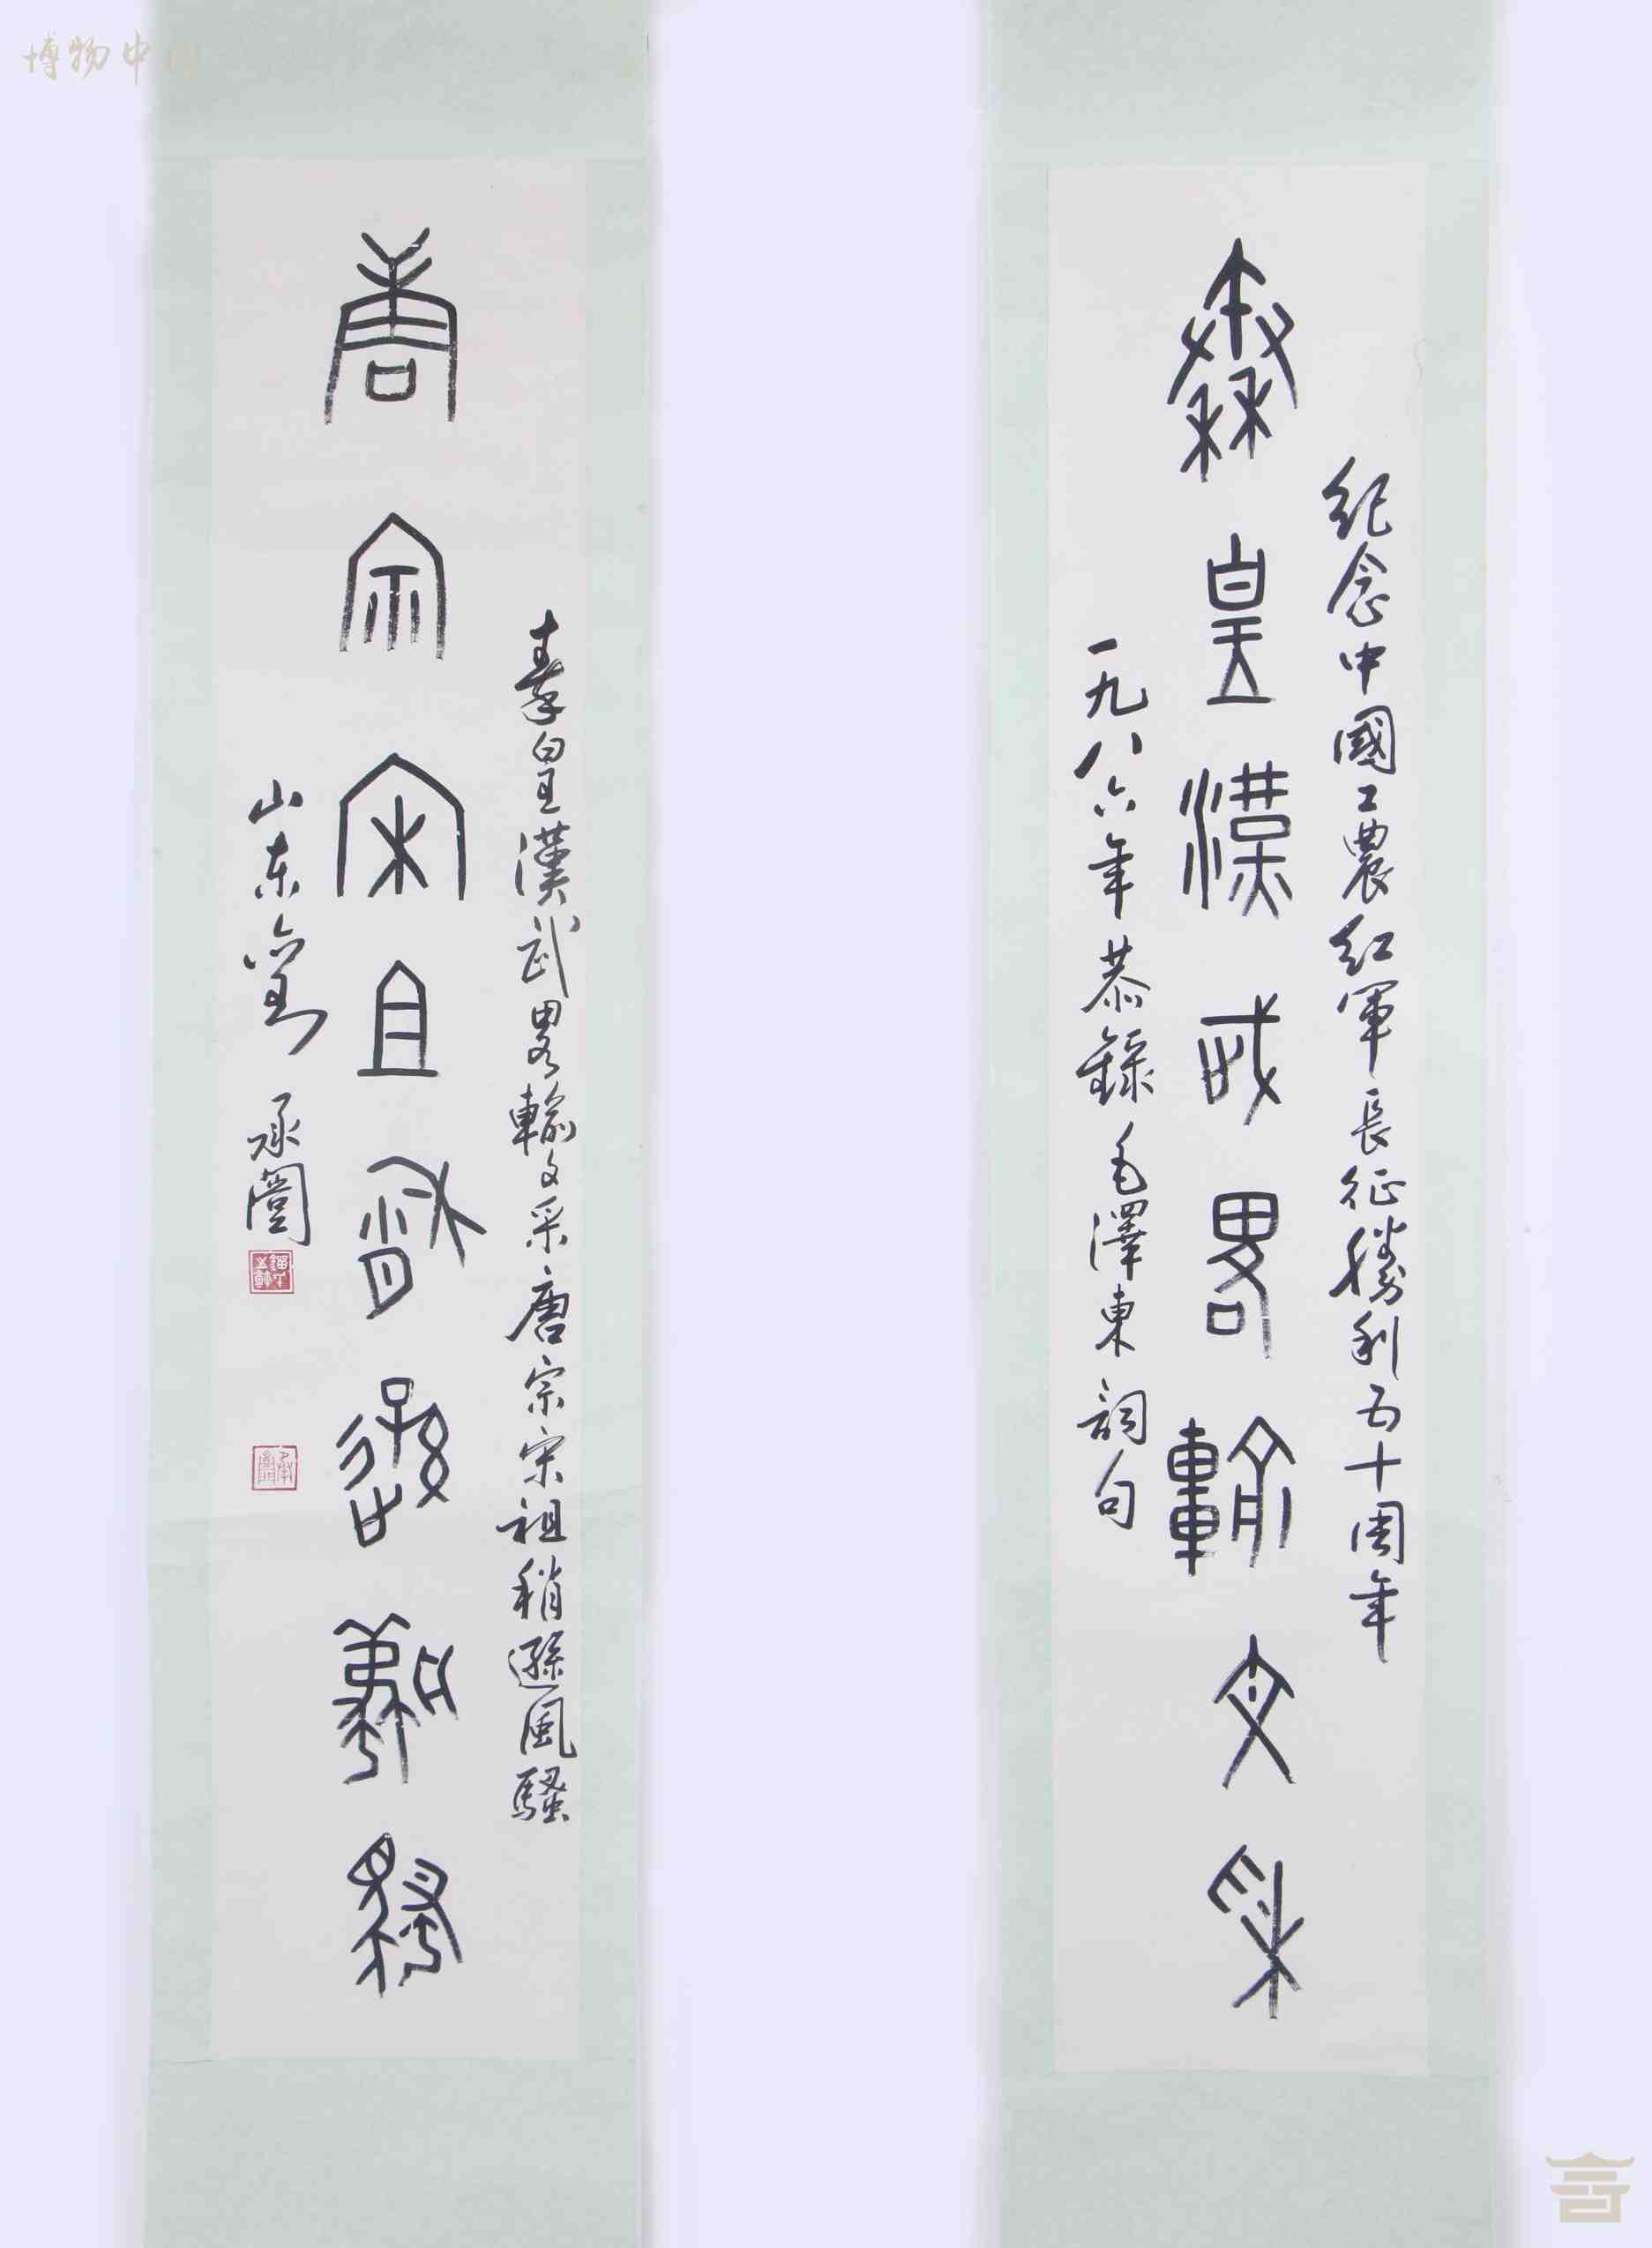 纪念中國工農红軍長征勝利五十周年
秦皇漢武畧輸文采
一九八六年恭錄毛澤東詞句
秦皇漢武畧輸文采唐宗宋祖稍遜風騷
唐宗宋且稍遜風騷
山东
博物中国